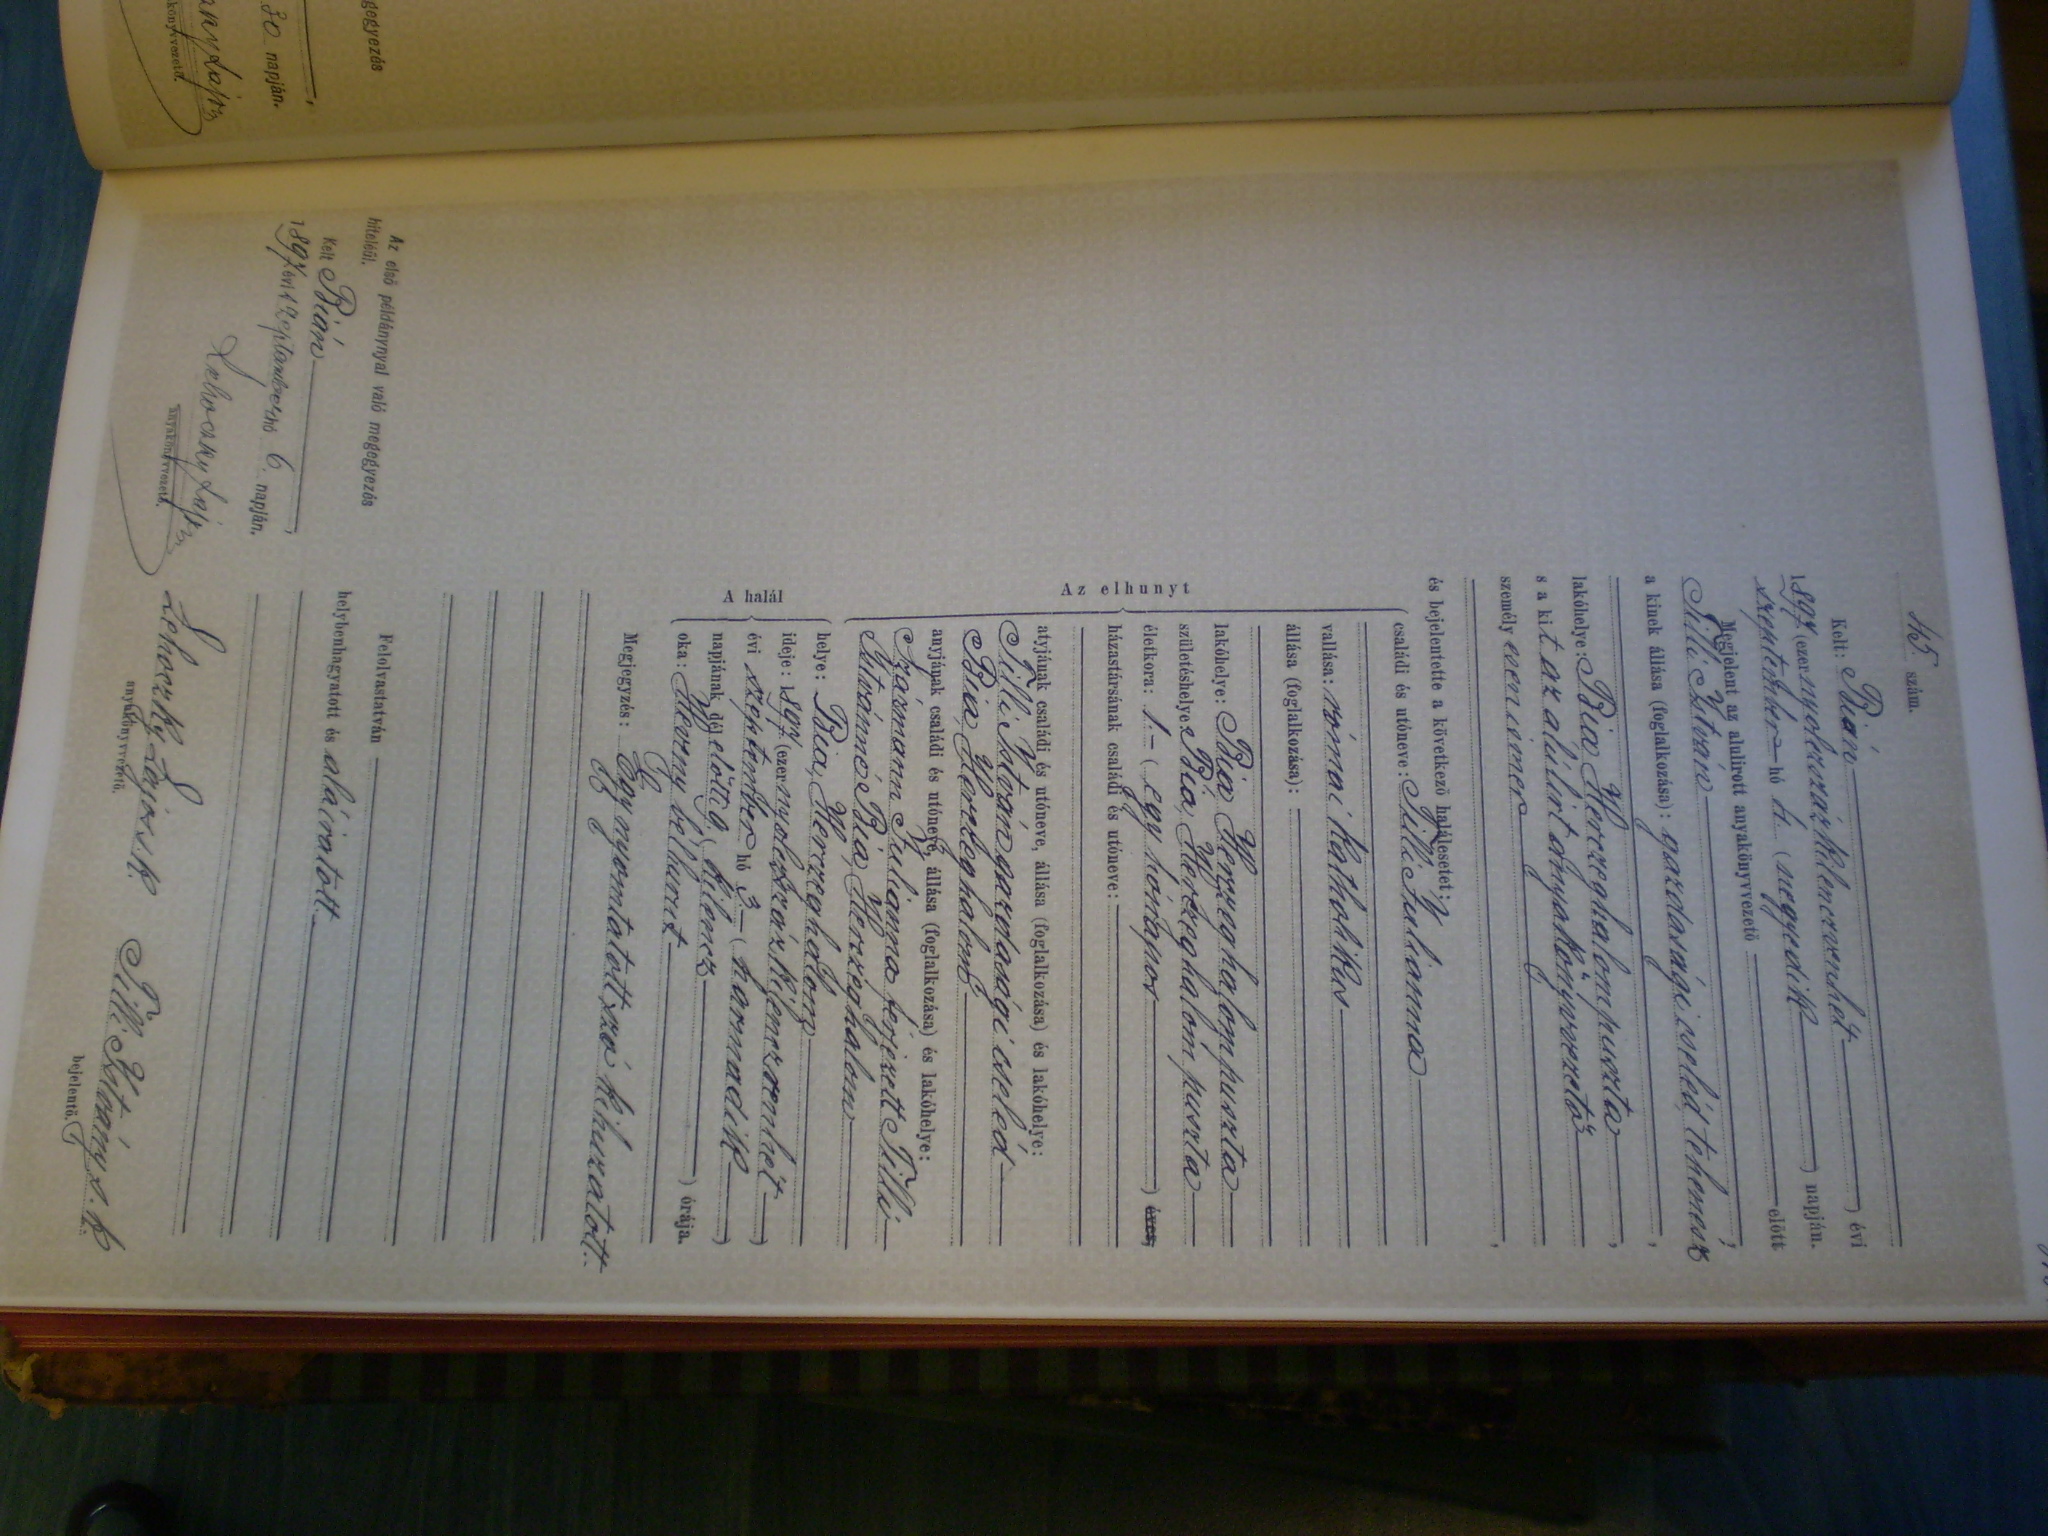 egyezés
30 napján.
45 szám.
Kelt: Bián
1897 (ezernyolczszázkilenczvenhét) évi
szeptember hó 4. (negyedik) napján.
Megjelent az alulirott anyakönyvvezető előtt
Tilli István,
a kinek állása (foglalkozása): gazdasági cseléd, tehenész,
lakóhelye: Bia Herczeghalom puszta,
s a kit az alúlirt anyakönyvvezető
személyesen ismer,
és bejelentette a következő halálesetet:
családi és utóneve: Tilli Julianna
vallása: római katholikus
állása (foglalkozása):
lakóhelye: Bia, Herczeghalom puszta
születéshelye: Bia, Herczeghalom puszta
életkora: 1. (egy hónapos) éves,
házastársának családi és utóneve:
Az elhunyt
atyjának családi és utóneve, állása (foglalkozása) és lakóhelye:
Tilli István gazdasági cseléd
Bia, Herczeghalom
anyjának családi és utóneve, állása (foglalkozása) és lakóhelye:
Julianna férjezett Tilli
Istvánné Bia, Herczeghalom
A halál
helye: Bia, Herczeghalom
ideje: 1897 (ezernyolczszázkilenczvenhét)
évi szeptember hó 3 (harmadik)
napjának d. előtti 9 (kilencz) órája.
oka: Heveny bélhurut
Megjegyzés: Egy nyomtatott szó kihuzatott.
Felolvastatván
helybenhagyatott és aláiratott.
Lehoczky Lajos s. k.
anyakönyvvezető.
Tilli István s. k.
bejelentő.
Az első példánynyal való megegyezés
hiteléül.
Kelt Bián
1897 évi szeptember hó 6. napján.
Lehoczky Lajos
anyakönyvvezető.